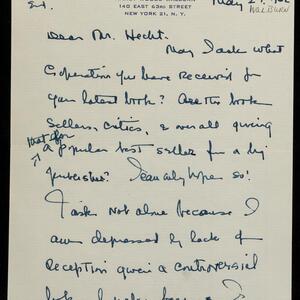 140 EAST 63RD STREET
NEW YORK 21, N.Y.
WALBURN
Dear Mr. Hecht.
May I ask what
Cooperation you have received for
your latest book? Are the book
sellers, critics, & overall giving
that of a
popular best seller for a big
publisher? I can only hope so!
I ask not alone because I
am depressed by lack of
reception given a controversial